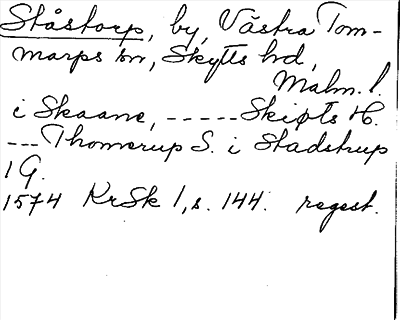 Ståstorp, by, Västra Tom-
marps sn, Skytts hd,
Malm. l.
i Skaane, ----- Skiøts H.
--- Thomerup S. i Stadstrup
1 G.
1574 KrSk 1, s. 144. regest.